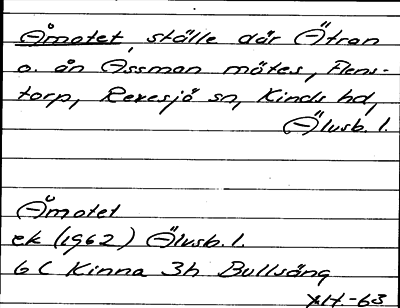 Åmotet, ställe där Ätran
o. ån Assman mötes, Flens-
torp, Rexesjö sn, Kinds hd,
Älvsb. l.
Åmotet
ek (1962) Älvsb. l.
6 C Kinna 3h Bullsäng
-63